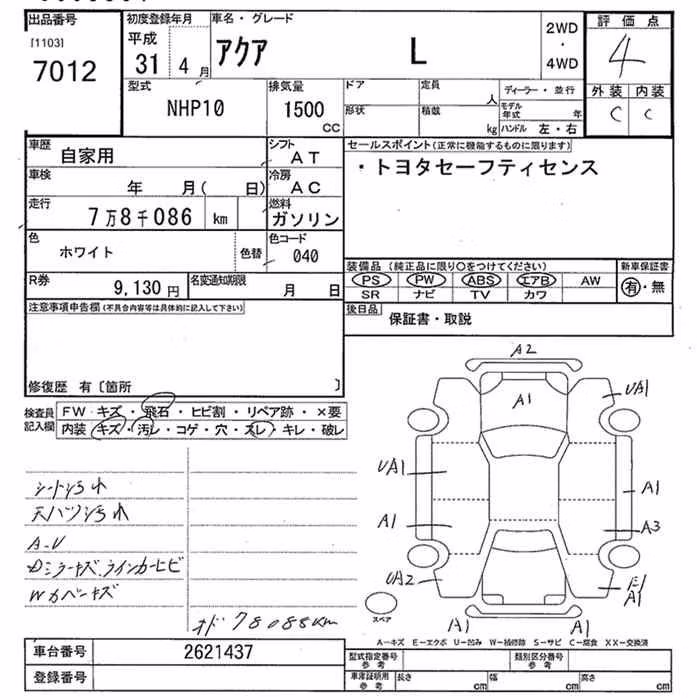 出品番号 初度登録年月 車名・グレード 2WD・4WD 評価点
[1103] 7012 平成 31 4月 アクア L 4
型式 排気量 ドア 定員 人 ディーラー・並行 外装 内装
NHP10 1500 CC 形状 積載 kg モデル年式 年 ハンドル 左・右 C C
車歴 自家用 シフト AT セールスポイント(正常に機能するものに限ります)
車検 年 月( 日) 冷房 AC ・トヨタセーフティセンス
走行 7万8千086 km 燃料 ガソリン
色 ホワイト 色替 色コード 040
装備品(純正品に限り○をつけてください) 新車保証書
PS PW ABS エアB AW 有・無
SR ナビ TV カワ
R券 9,130円 名変通知期限 月 日
後日品 保証書・取説
注意事項申告欄(不具合内容等は具体的に記入して下さい)
修復歴 有〔箇所 〕
検査員記入欄 FW キズ・飛石・ヒビ割・リペア跡・×要
内装 キズ・汚レ・コゲ・穴・スレ・キレ・破レ
A2
A1 UA1
UA1 A1
A1 A3
UA2 A1
A1 A1
スペア
シート汚れ
天バリ汚れ
A-U
Dミラーキズ、ウインカーヒビ
Wカバーキズ
オド 78088km
A-キズ E-エクボ U-凹み W-補修跡 S-サビ C-腐食 XX-交換済
車台番号 2621437 型式指定番号 参考 類別区分番号 参考
登録番号 車庫証明用 参考 長さ cm 幅 cm 高さ cm